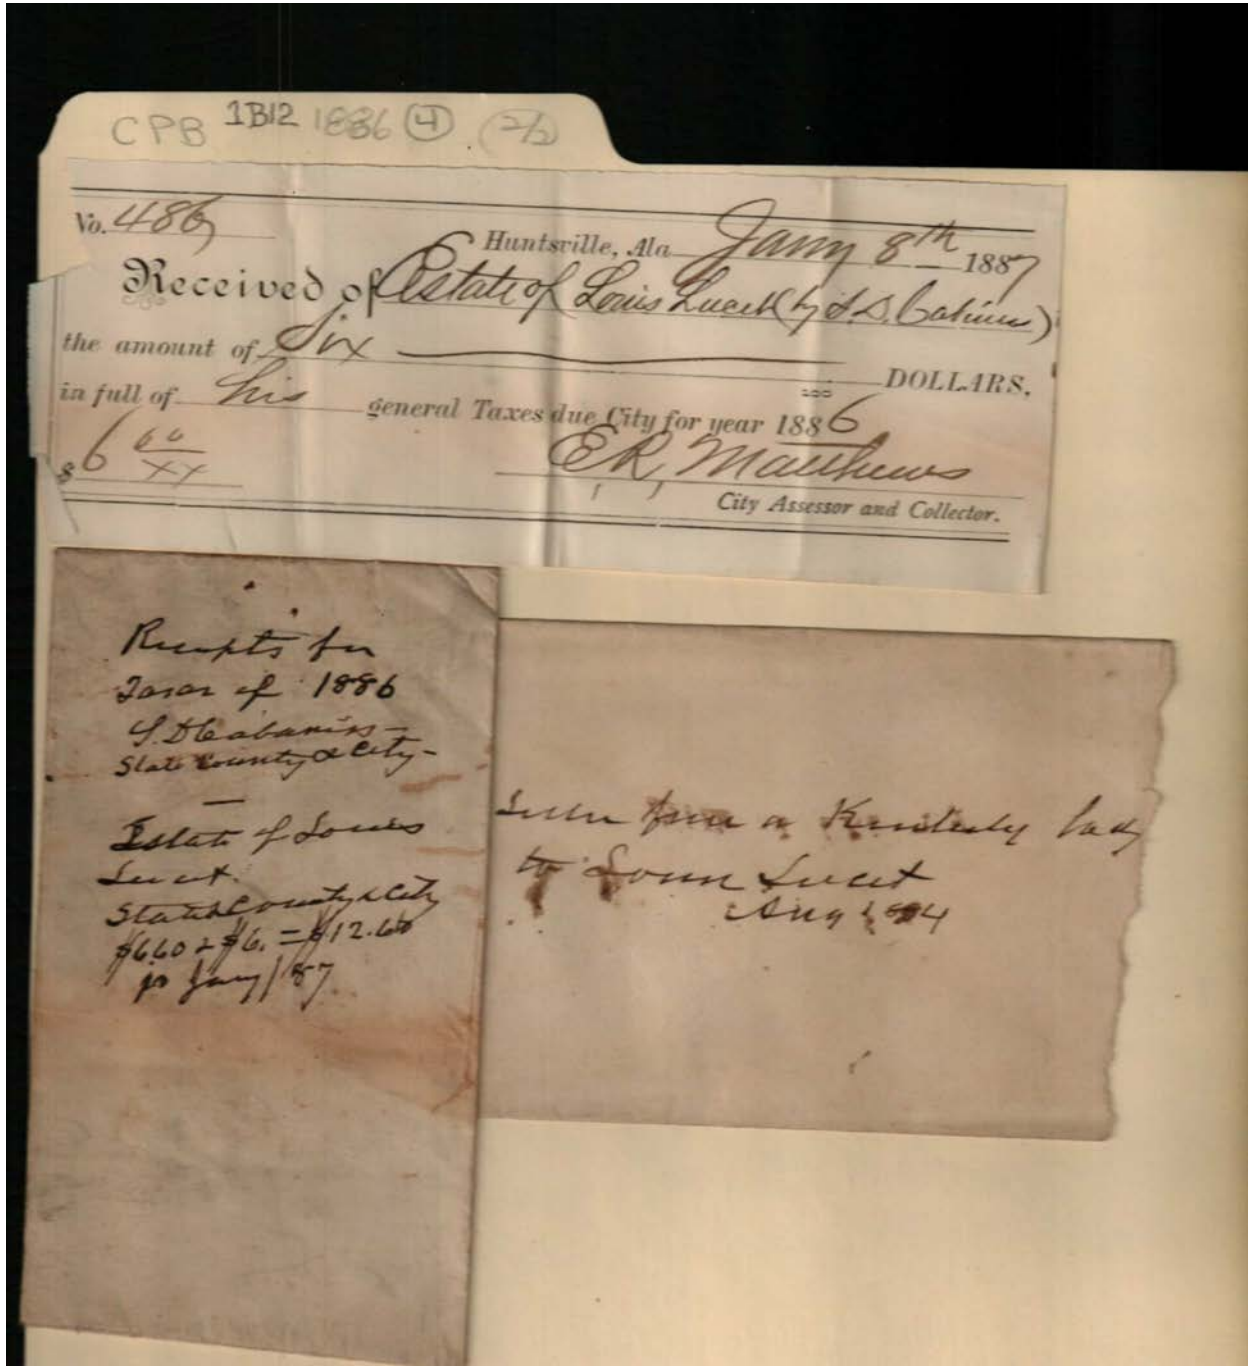 CPB 1B12 1886 (4) (2/2)
No. 486
Huntsville, Ala Jany 8th 1887
Received of Estate of Louis Lucet (by S. D. Cabiniss)
the amount of Six DOLLARS,
100
in full of his general Taxes due City for year 1886
$6 00/xx
E. R. Matthews
City Assessor and Collector.
Receipts for
Taxes of 1886
S. D Cabaniss -
State County & City -
Estate of Louis
Lucet.
State & County & City
$6.60 + $6. = $12.60
Jany / 87
Letter from a Kentucky lady
to Louis Lucet
Aug 1884